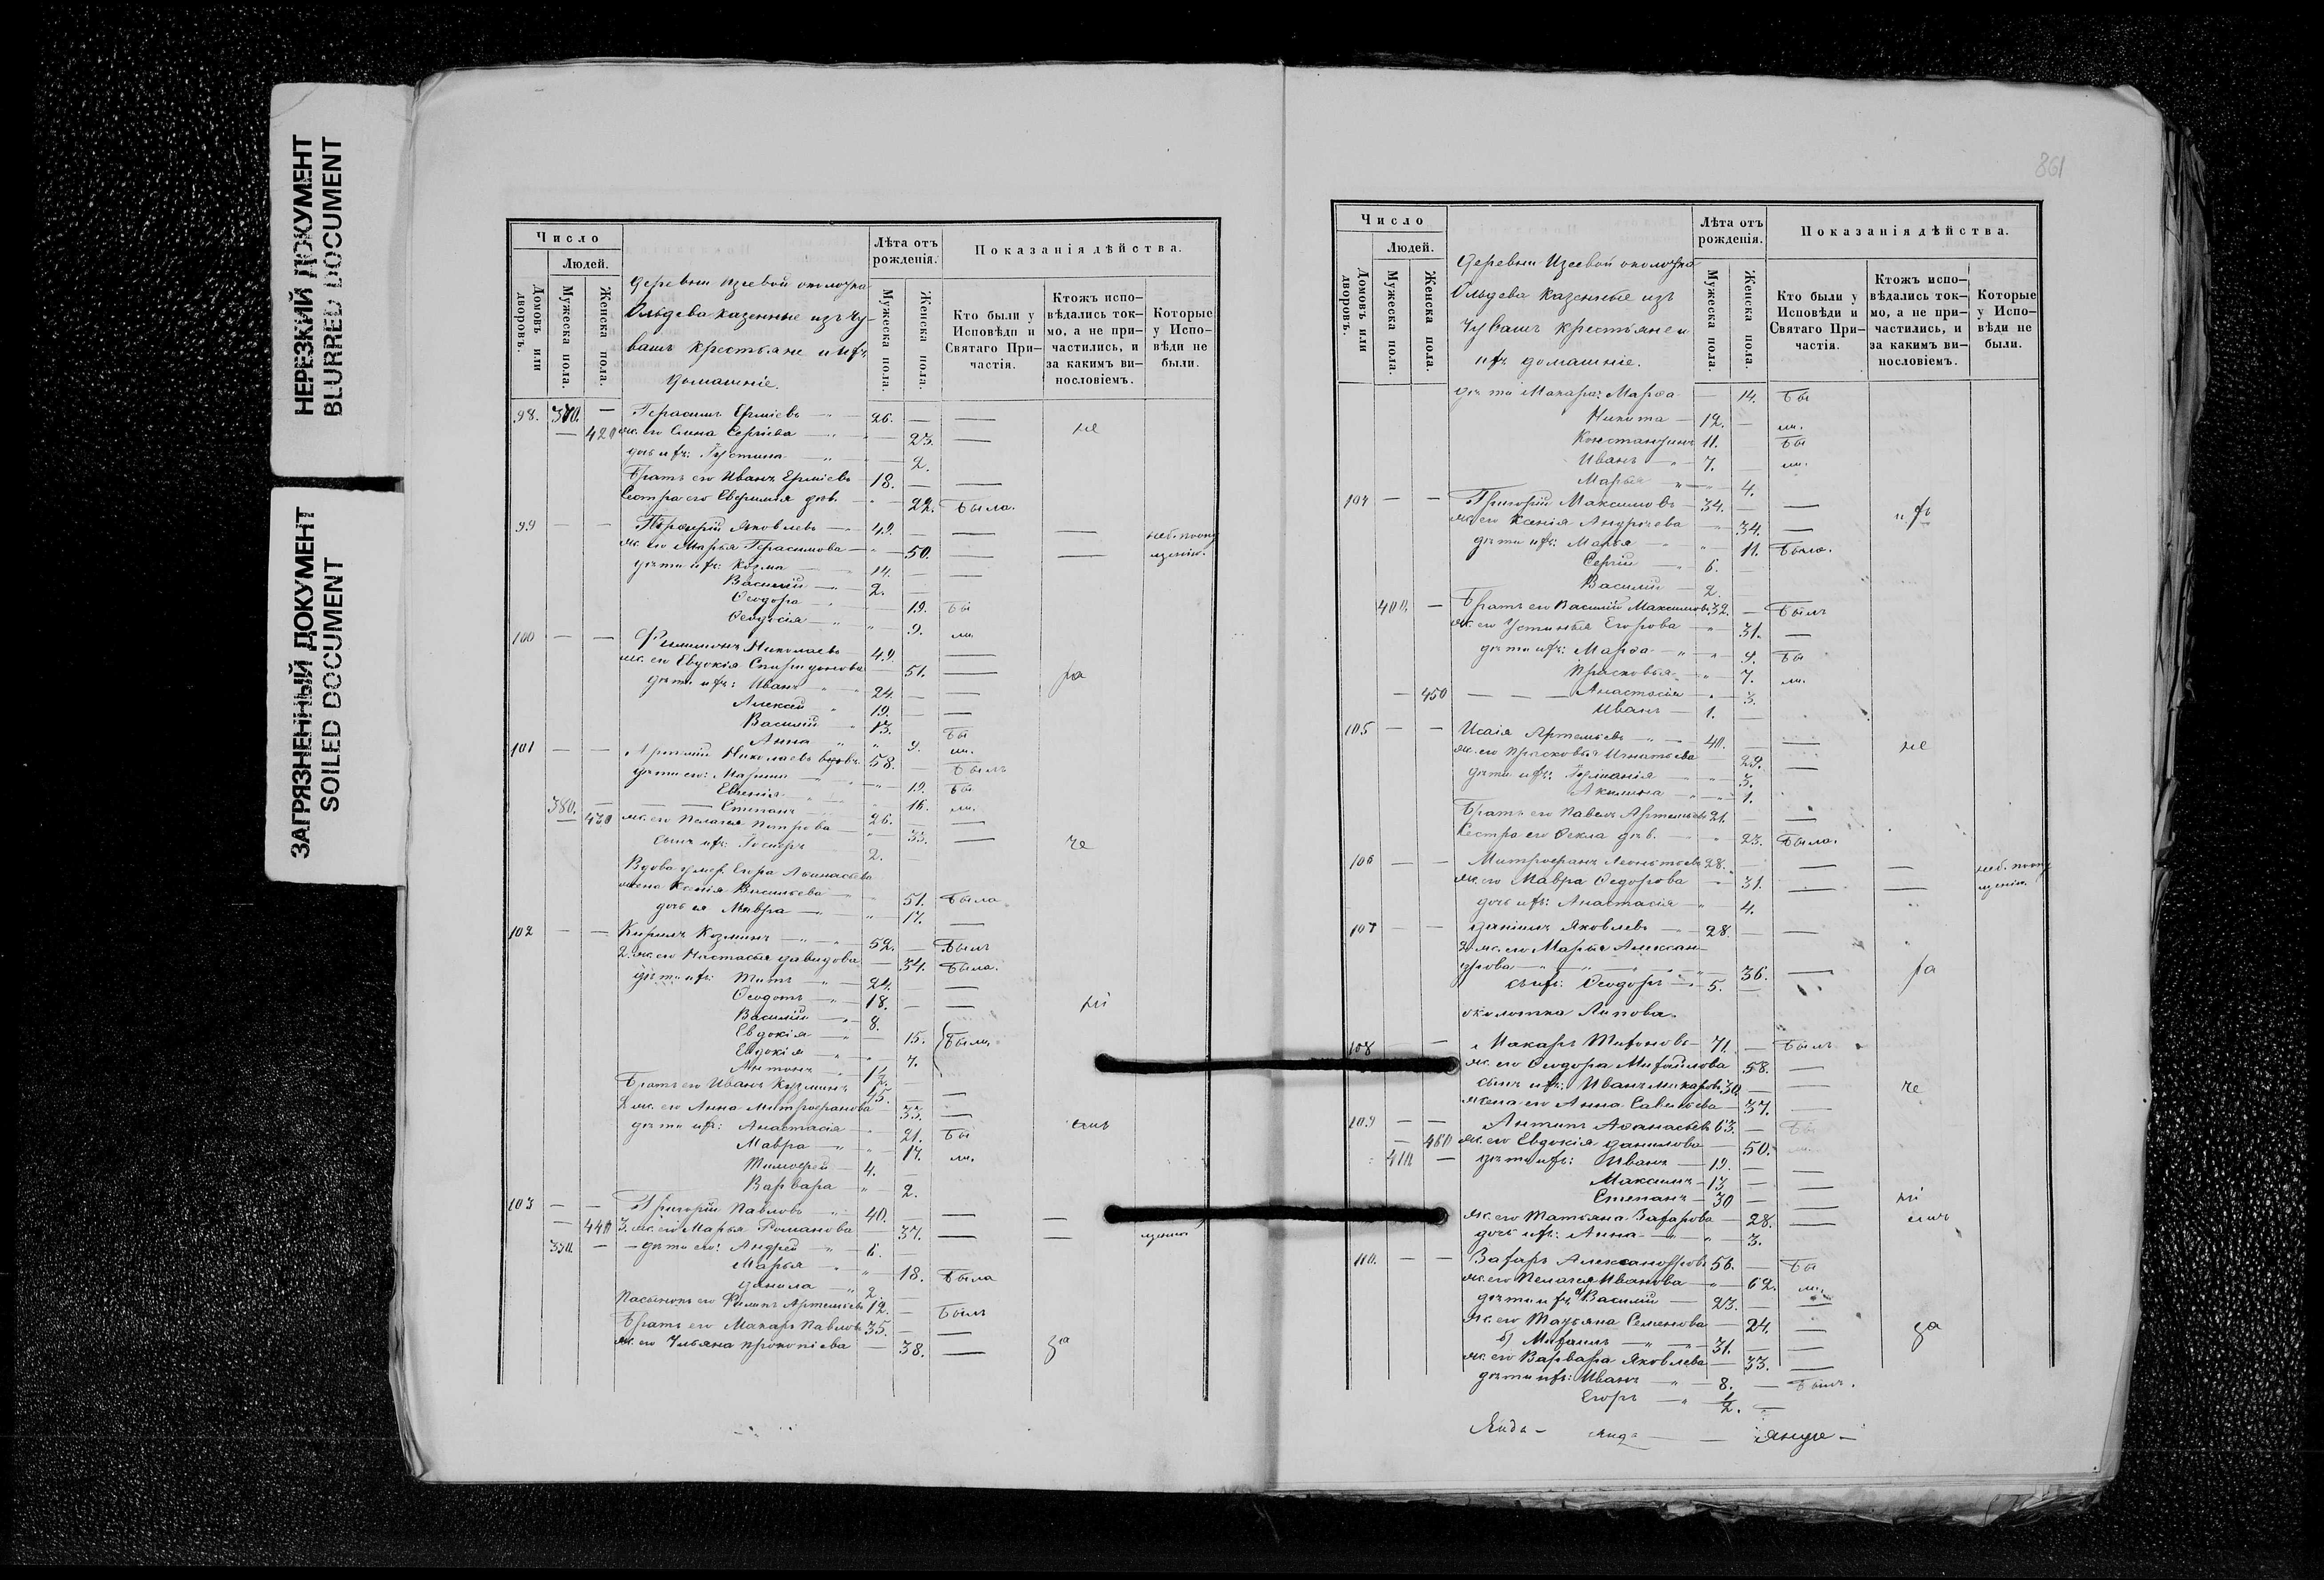 НЕРЕЗКИЙ ДОКУМЕНТ
BLURRED DOCUMENT
ЗАГРЯЗНЕННЫЙ ДОКУМЕНТ
SOILED DOCUMENT
Число
Людей.
Домовъ или дворовъ.
Мужеска пола.
Женска пола.
деревни Изеевой околотка
Ольдева казенные изъ чу-
вашъ крестьяне и ихъ
домашніе.
Лѣта отъ рожденія.
Мужеска пола.
Женска пола.
Показанія дѣйства.
Кто были у Исповѣди и Святаго При-частія.
Ктожъ испо-вѣдались ток-мо, а не при-частились, и за какимъ ви-нословіемъ.
Которые у Испо-вѣди не были.
98. 370. — Герасимъ Ерміевъ 26. —
— 420 ж. его Сергіева 23. — не
дочь ихъ: Іустина 2.
Братъ его Иванъ Ерміевъ 18. —
Сестра его дѣв. 22. Была.
99 — — Яковлевъ 49. —
ж. его Марья Герасимова 50. —
дѣти ихъ: Козма 14. —
Василій 2.
Ѳеодора 19. Бы
Ѳеодосія 9. ли.
100 — — Филимонъ Николаевъ 49. —
ж. его Евдокія Спиридонова 51. — ра
дѣти ихъ: Иванъ 24. —
Алексѣй 19. —
Василій 13. Бы
Анна 9. ли.
101 — — Николаевъ вдовъ 58. Былъ
дѣти его: 19. Бы
Евгенія 16. ли.
380. — Степанъ 26. —
430 ж. его Пелагея Петрова 33. —
сынъ ихъ: 2. че
Вдова умер. Егора Аѳанасьева
жена Ксенія Васильева 51. Была
дочь ея Мавра 17. —
102 — — Кирилъ Козминъ 52. Былъ
2. ж. его Настасья Давидова 34. Была.
дѣти ихъ: Титъ 24. —
Ѳеодотъ 18. — ні
Василій 8.
Евдокія 15. Были
Евдокія 7.
Антонъ 1/2.
Братъ его Иванъ Кузминъ 45. —
2 ж. его Анна Митрофанова 33. —
дѣти ихъ: Анастасія 21. Бы
Мавра 17. ли.
Тимоѳей 4.
Варвара 2.
103 — — Григорій Павловъ 40. —
— 440 3. ж. его Марья Романова 37. —
390 — дѣти его: Андрей 6.
Марья 18. Была
Данила 2.
Пасынокъ его Филипъ Артемьевъ 12. Былъ
Братъ его Макаръ Павловъ 35. —
ж. его Ульяна Прокопіева 38. — за
861
Число
Людей.
Домовъ или дворовъ.
Мужеска пола.
Женска пола.
Деревни Изеевой околотка
Ольдева казенные изъ
чувашъ крестьяне и
ихъ домашніе.
Лѣта отъ рожденія.
Мужеска пола.
Женска пола.
Показанія дѣйства.
Кто были у Исповѣди и Святаго При-частія.
Ктожъ испо-вѣдались ток-мо, а не при-частились, и за какимъ ви-нословіемъ.
Которые у Испо-вѣди не были.
дѣти Макара: Марѳа 14. Бы
Никита 12. ли.
Константинъ 11. Бы
Иванъ 7. ли.
Марья 4.
104 — — Григорій Максимовъ 34. —
ж. его Ксенія Андреева 34. — ихъ
дѣти ихъ: Марья 11. Была.
Сергій 6.
Василій 2.
400. — Братъ его Василій Максимовъ 32. Былъ
ж. его Устинья Егорова 31. —
дѣти ихъ: Марѳа 9. Бы
Прасковья 7. ли.
— 450 — Анастасія 3.
Иванъ 1.
105 — — Исаія Артемьевъ 40. — не
ж. его Прасковья Игнатьева 29. —
дѣти ихъ: 3.
Акилина 1.
Братъ его Павелъ Артемьевъ 21. —
Сестра его Ѳекла дѣв. 23. Была.
106 — — Митрофанъ Леонтьевъ 28. —
ж. его Мавра Ѳедорова 31. —
дочь ихъ: Анастасія 4.
107 — — Даніилъ Яковлевъ 28. —
2 ж. его Марья Алексан-
дрова 36. — ра
сынъ ихъ: Ѳеодоръ 5.
околотка Липова.
108 — Макаръ Тихоновъ 71. Былъ
ж. его Ѳеодора Михайлова 58. —
сынъ ихъ: Иванъ Макаровъ 30. — че
жена его Анна Савельева 37. —
109 — — Антипъ Аѳанасьевъ 63. Бы
— 460 ж. его Евдокія Данилова 50. ли.
410 — дѣти ихъ: Иванъ 19. —
Максимъ 13 —
Степанъ 30 — ні
ж. его Татьяна Захарова 28. —
дочь ихъ: Анна 3.
110. — — Захаръ Александровъ 56. Бы
ж. его Пелагея Иванова 62. ли.
дѣти ихъ а) Василій 23. —
ж. его Татьяна Семенова 24. — за
б) Михаилъ 31. —
ж. его Варвара Яковлева 33. —
дѣти ихъ: Иванъ 8. Былъ.
Егоръ 1/2.